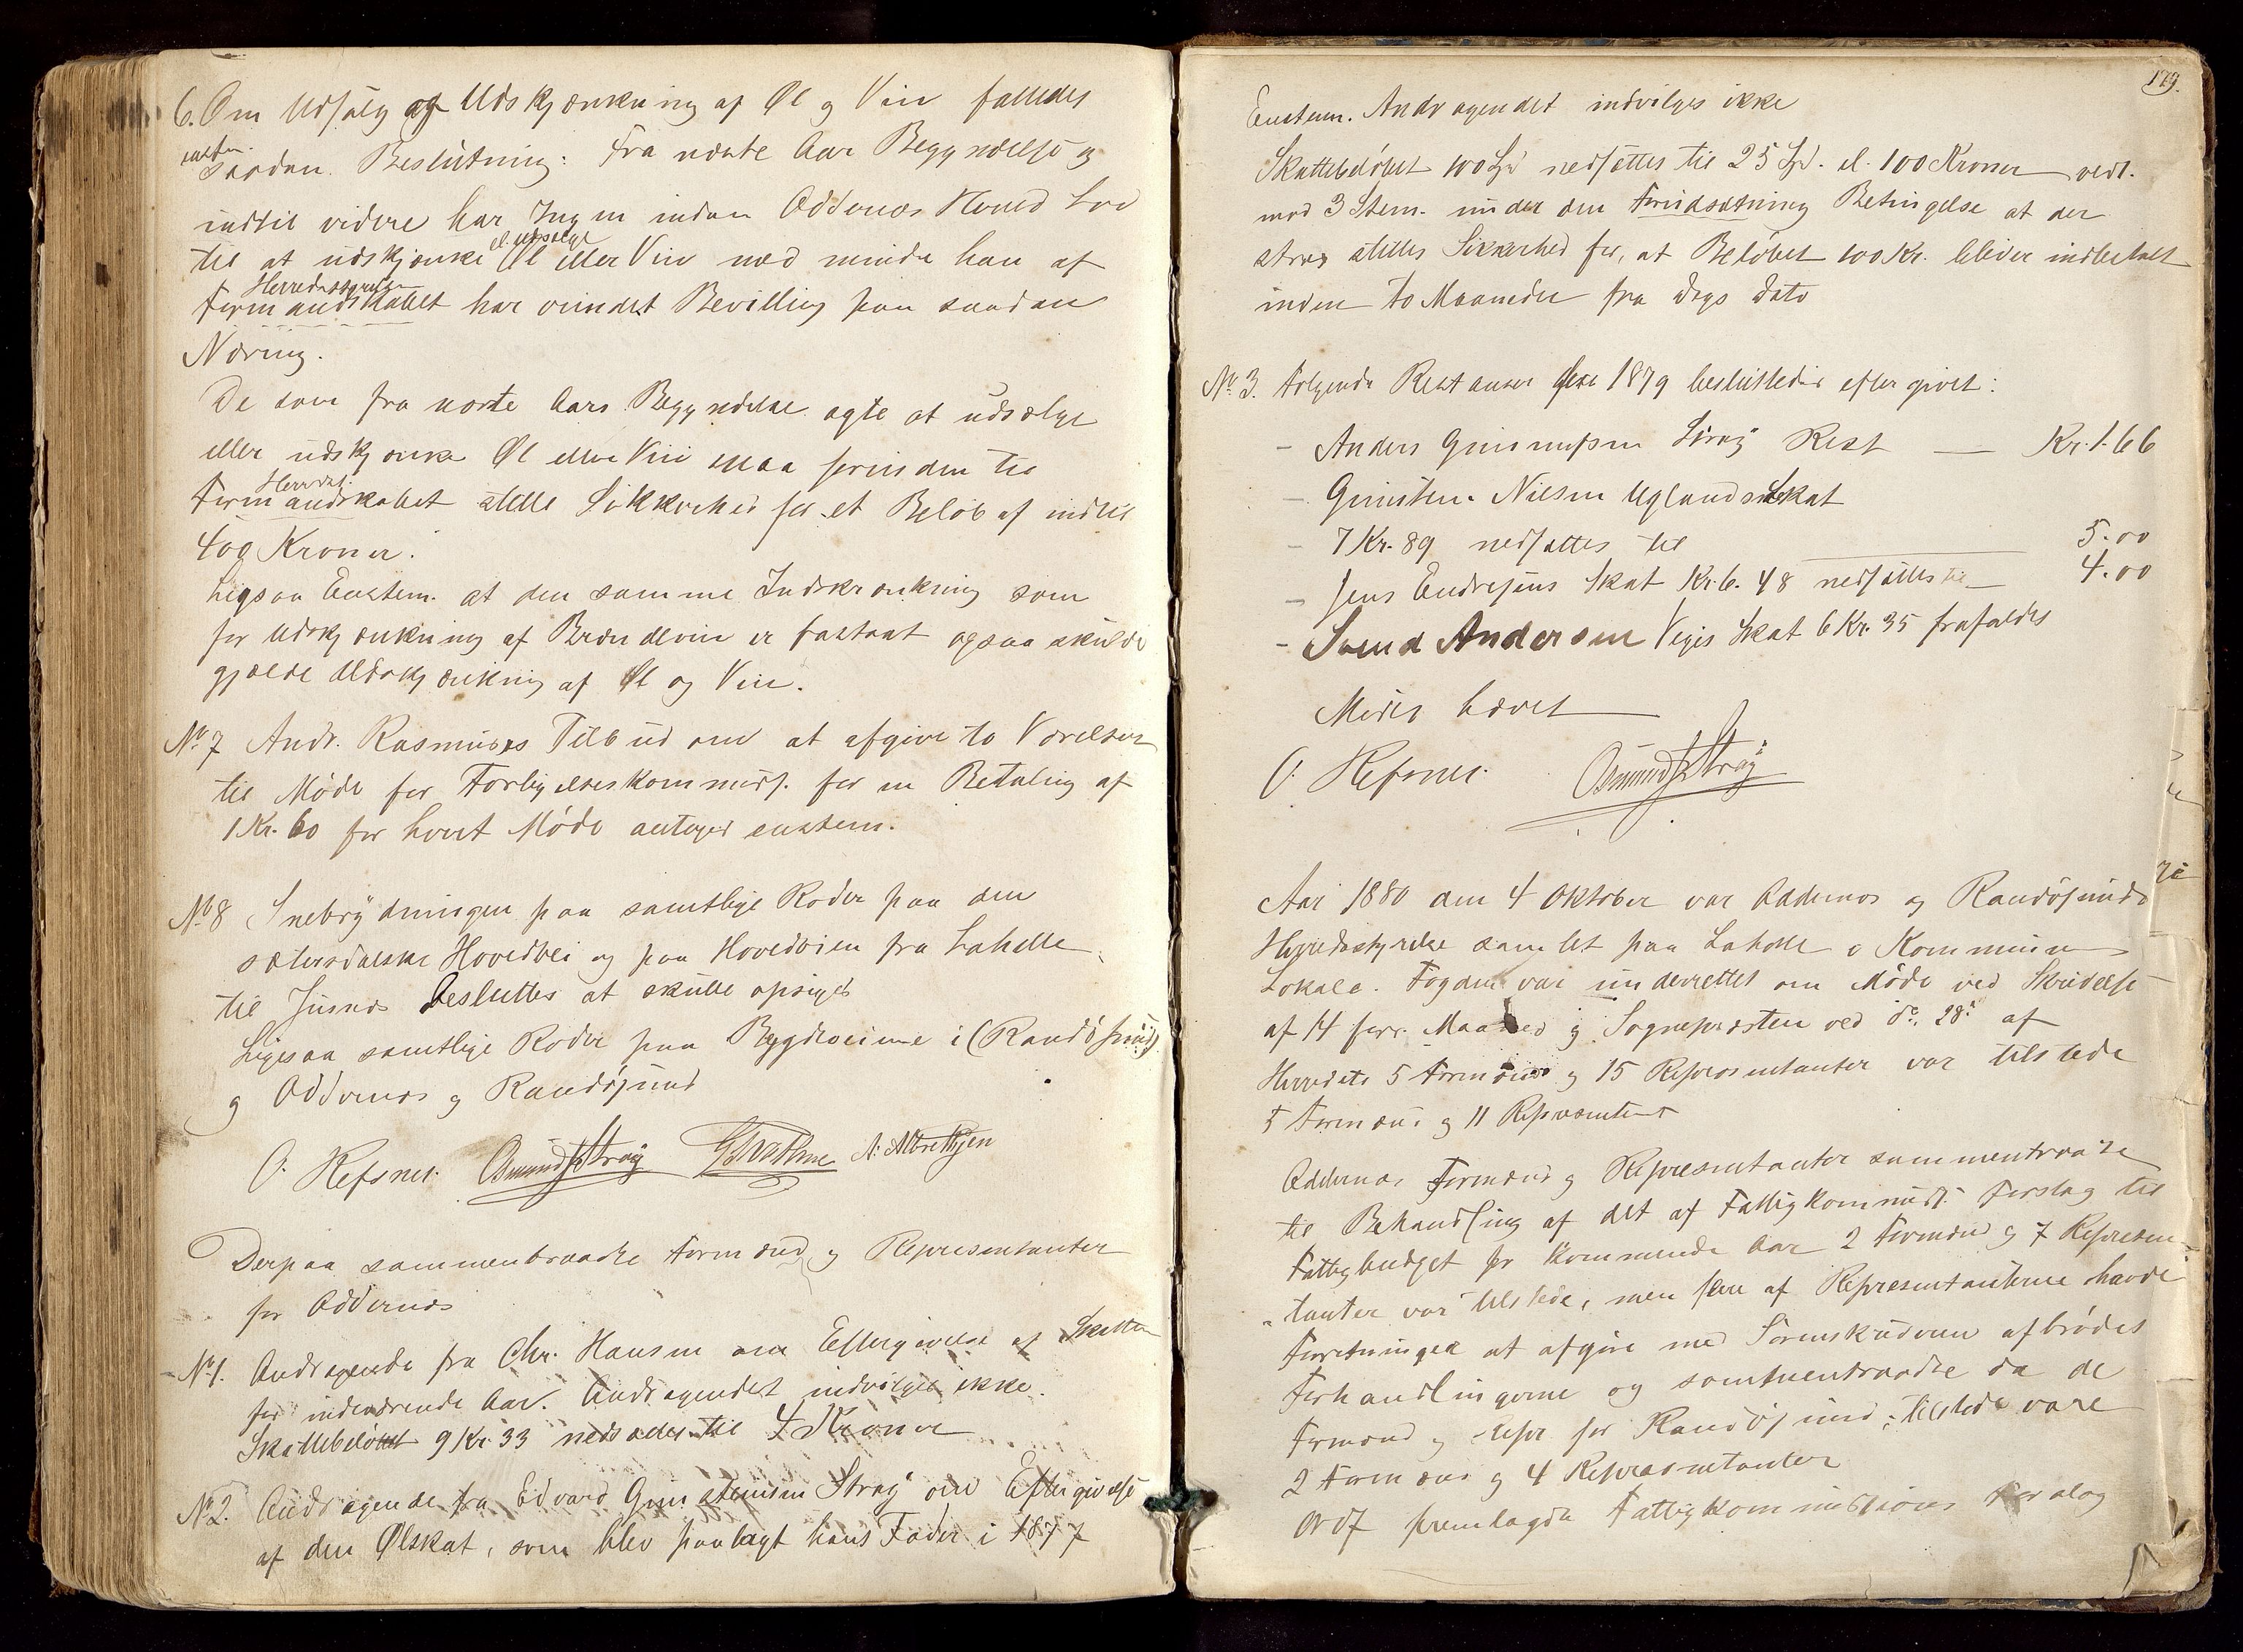 6. Om Udsalg og Udskjænkning af Øl og Vin fattedes
enstem.
saadan Beslutning: Fra næste Aar Begyndelse og
indtil videre har Ingen inden Oddernes Hered Lov
el. udsælge
til at udskjænke Øl eller Vin med mindre han af
Herredsstyrelse
Formandskabet har vundet Bevilling paa saadan
Næring.
De som fra næste Aars Begyndelse agte at udsælge
eller udskjænke Øl eller Vin maa forinden til
Herreds.
Formandskabet stille Sikkerhed for et Beløb af indtil
400 Kroner.
Ligesaa Enstem. at den samme Indskrænkning som
for Udskjænkning af Brændevin er fastsat ogsaa skulde
gjælde Udskjænkning af Øl og Vin.
No 7 Andr. Rasmuses Tilbud om at afgive to Værelser
til Møde for Forligelseskommiss. for en Betaling af
1 Kr. 60 for hvert Møde antoges enstem.
No 8 Snebrydningen paa samtlige Roder paa den
sætersdalske Hovedvei og paa Hovedveien fra Lahelle
til Jusnes besluttes at skulle opsiges
Ligesaa samtlige Roder paa Bygdeveiene i (Randøsund)
g Oddernes og Randøsund
O. Refsnes. Osmund Strøy A. Albrethsen
Derpaa sammentraadte Formænd og Representanter
for Oddernes
No 1. Andragende fra Chr. Hansen om Eftergivelse af Skatten
for indeværende Aar. Andragendet indvilges ikke.
Skattebeløbet 9 Kr. 33 nedsættes til 4 Kroner
No 2. Andragende fra Edvard Gunstensen Strøy om Eftergivelse
af den Ølskat, som blev paalagt hans Fader i 1877
179.
Enstem. Andragendet indvilges ikke
Skattebeløbet 100 Spd nedsættes til 25 Spd. el. 100 Kroner vedt.
mod 3 Stem. under den Forudsætning Betingelse at der
strax stilles Sikkerhed for, at Beløbet 100 Kr. bliver indbetalt
inden to Maaneder fra Dags Dato
No 3. Følgende Restanser for 1879 besluttedes eftergivet:
- Anders Gunnufsen Strøy Rest — Kr. 1.66
- Gunsten Nielsen Uglands Skat
- 7 Kr. 89 nedsættes til — 5.00
- Jens Endresens Skat Kr. 6.48 nedsættes til — 4.00
- Svend Andersen Veges Skat 6 Kr. 35 frafaldes
Mødet hævet
O. Refsnes. Osmund Strøy
Aar 1880 den 4 Oktober var Oddernes og Randøsunds
Herredsstyrelse samlet paa Lahelle i Kommunens
Lokale. Fogden var underrettet om Møde ved Skrivelse
af 14 forr. Maaned og Sognepræsten ved do. 28. af
Herredets 5 Formænd og 15 Representanter var tilstede
5 Formænd og 11 Representant
Oddernes Formænd og Representanter sammentraadte
til Behandling af det af Fattigkommiss. Forslag til
Fattigbudget for kommende Aar 2 Formænd og 7 Represen-
tanter var tilstede, men flere af Representanterne havde
Forretninger at afgjøre med Sorenskriveren afbrødes
Forhandlingerne og sammentraadte da de
Formænd og Repr for Randøsund; tilstede vare
2 Formænd og 4 Representanter
Ordf fremlagde Fattigkommissionens Forslag